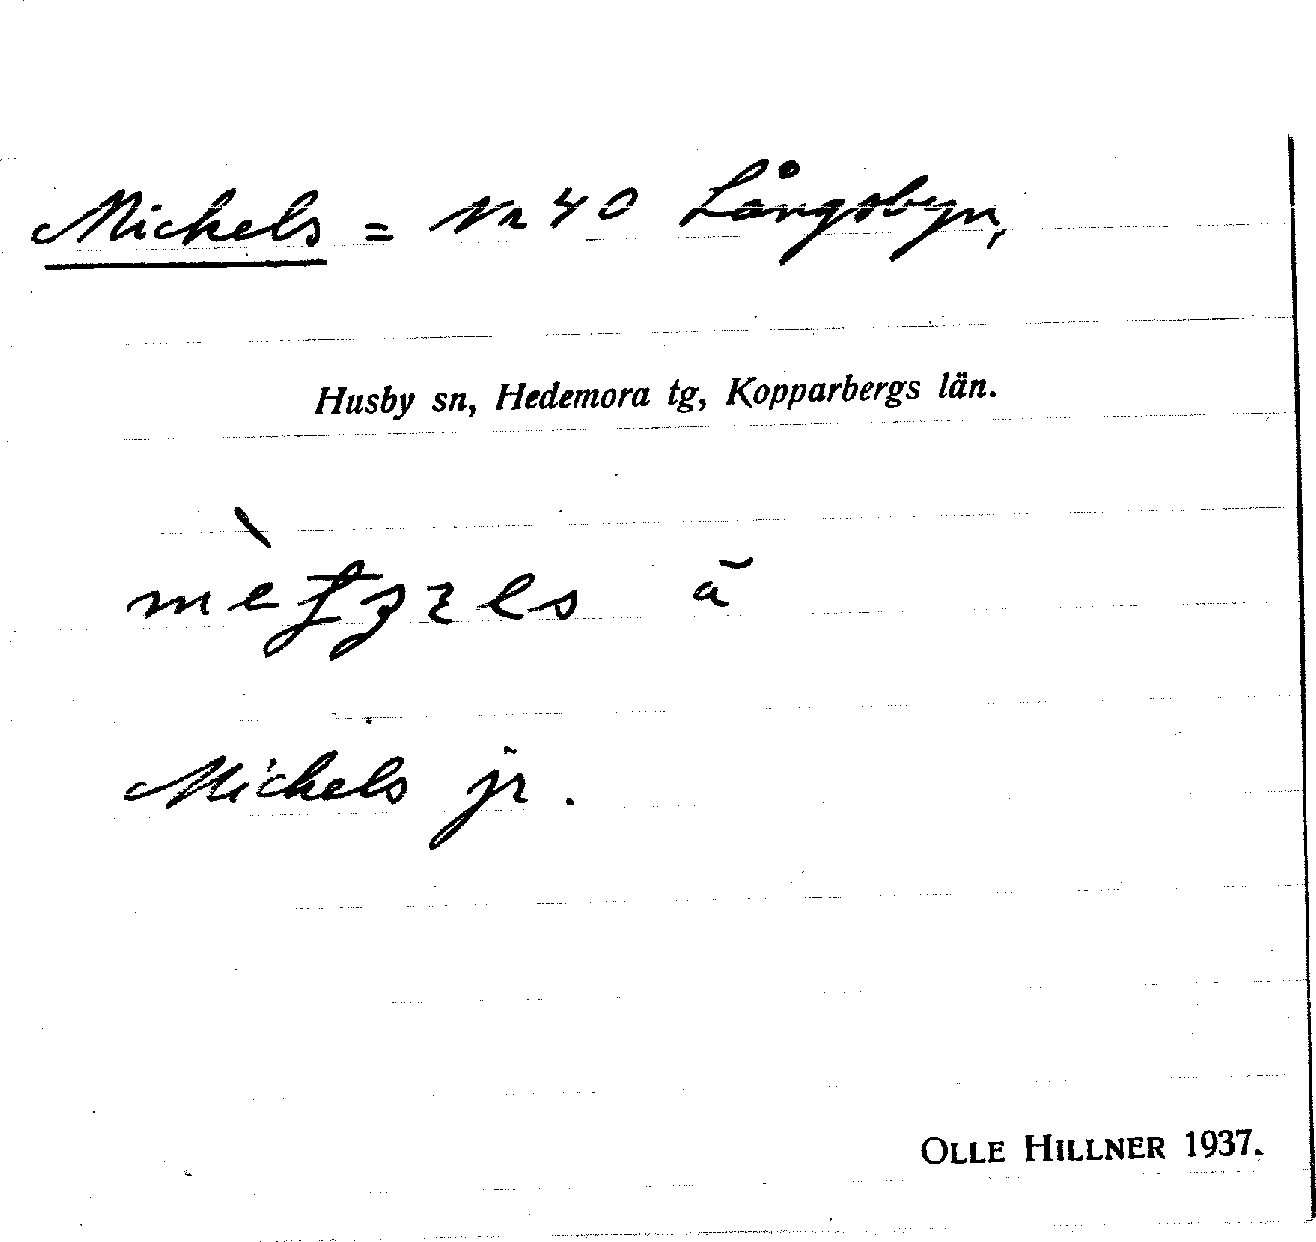 Michels = Nr 40 Långsbyn,
Husby sn, Hedemora tg, Kopparbergs län.
ā
Michels jr.
OLLE HILLNER 1937.